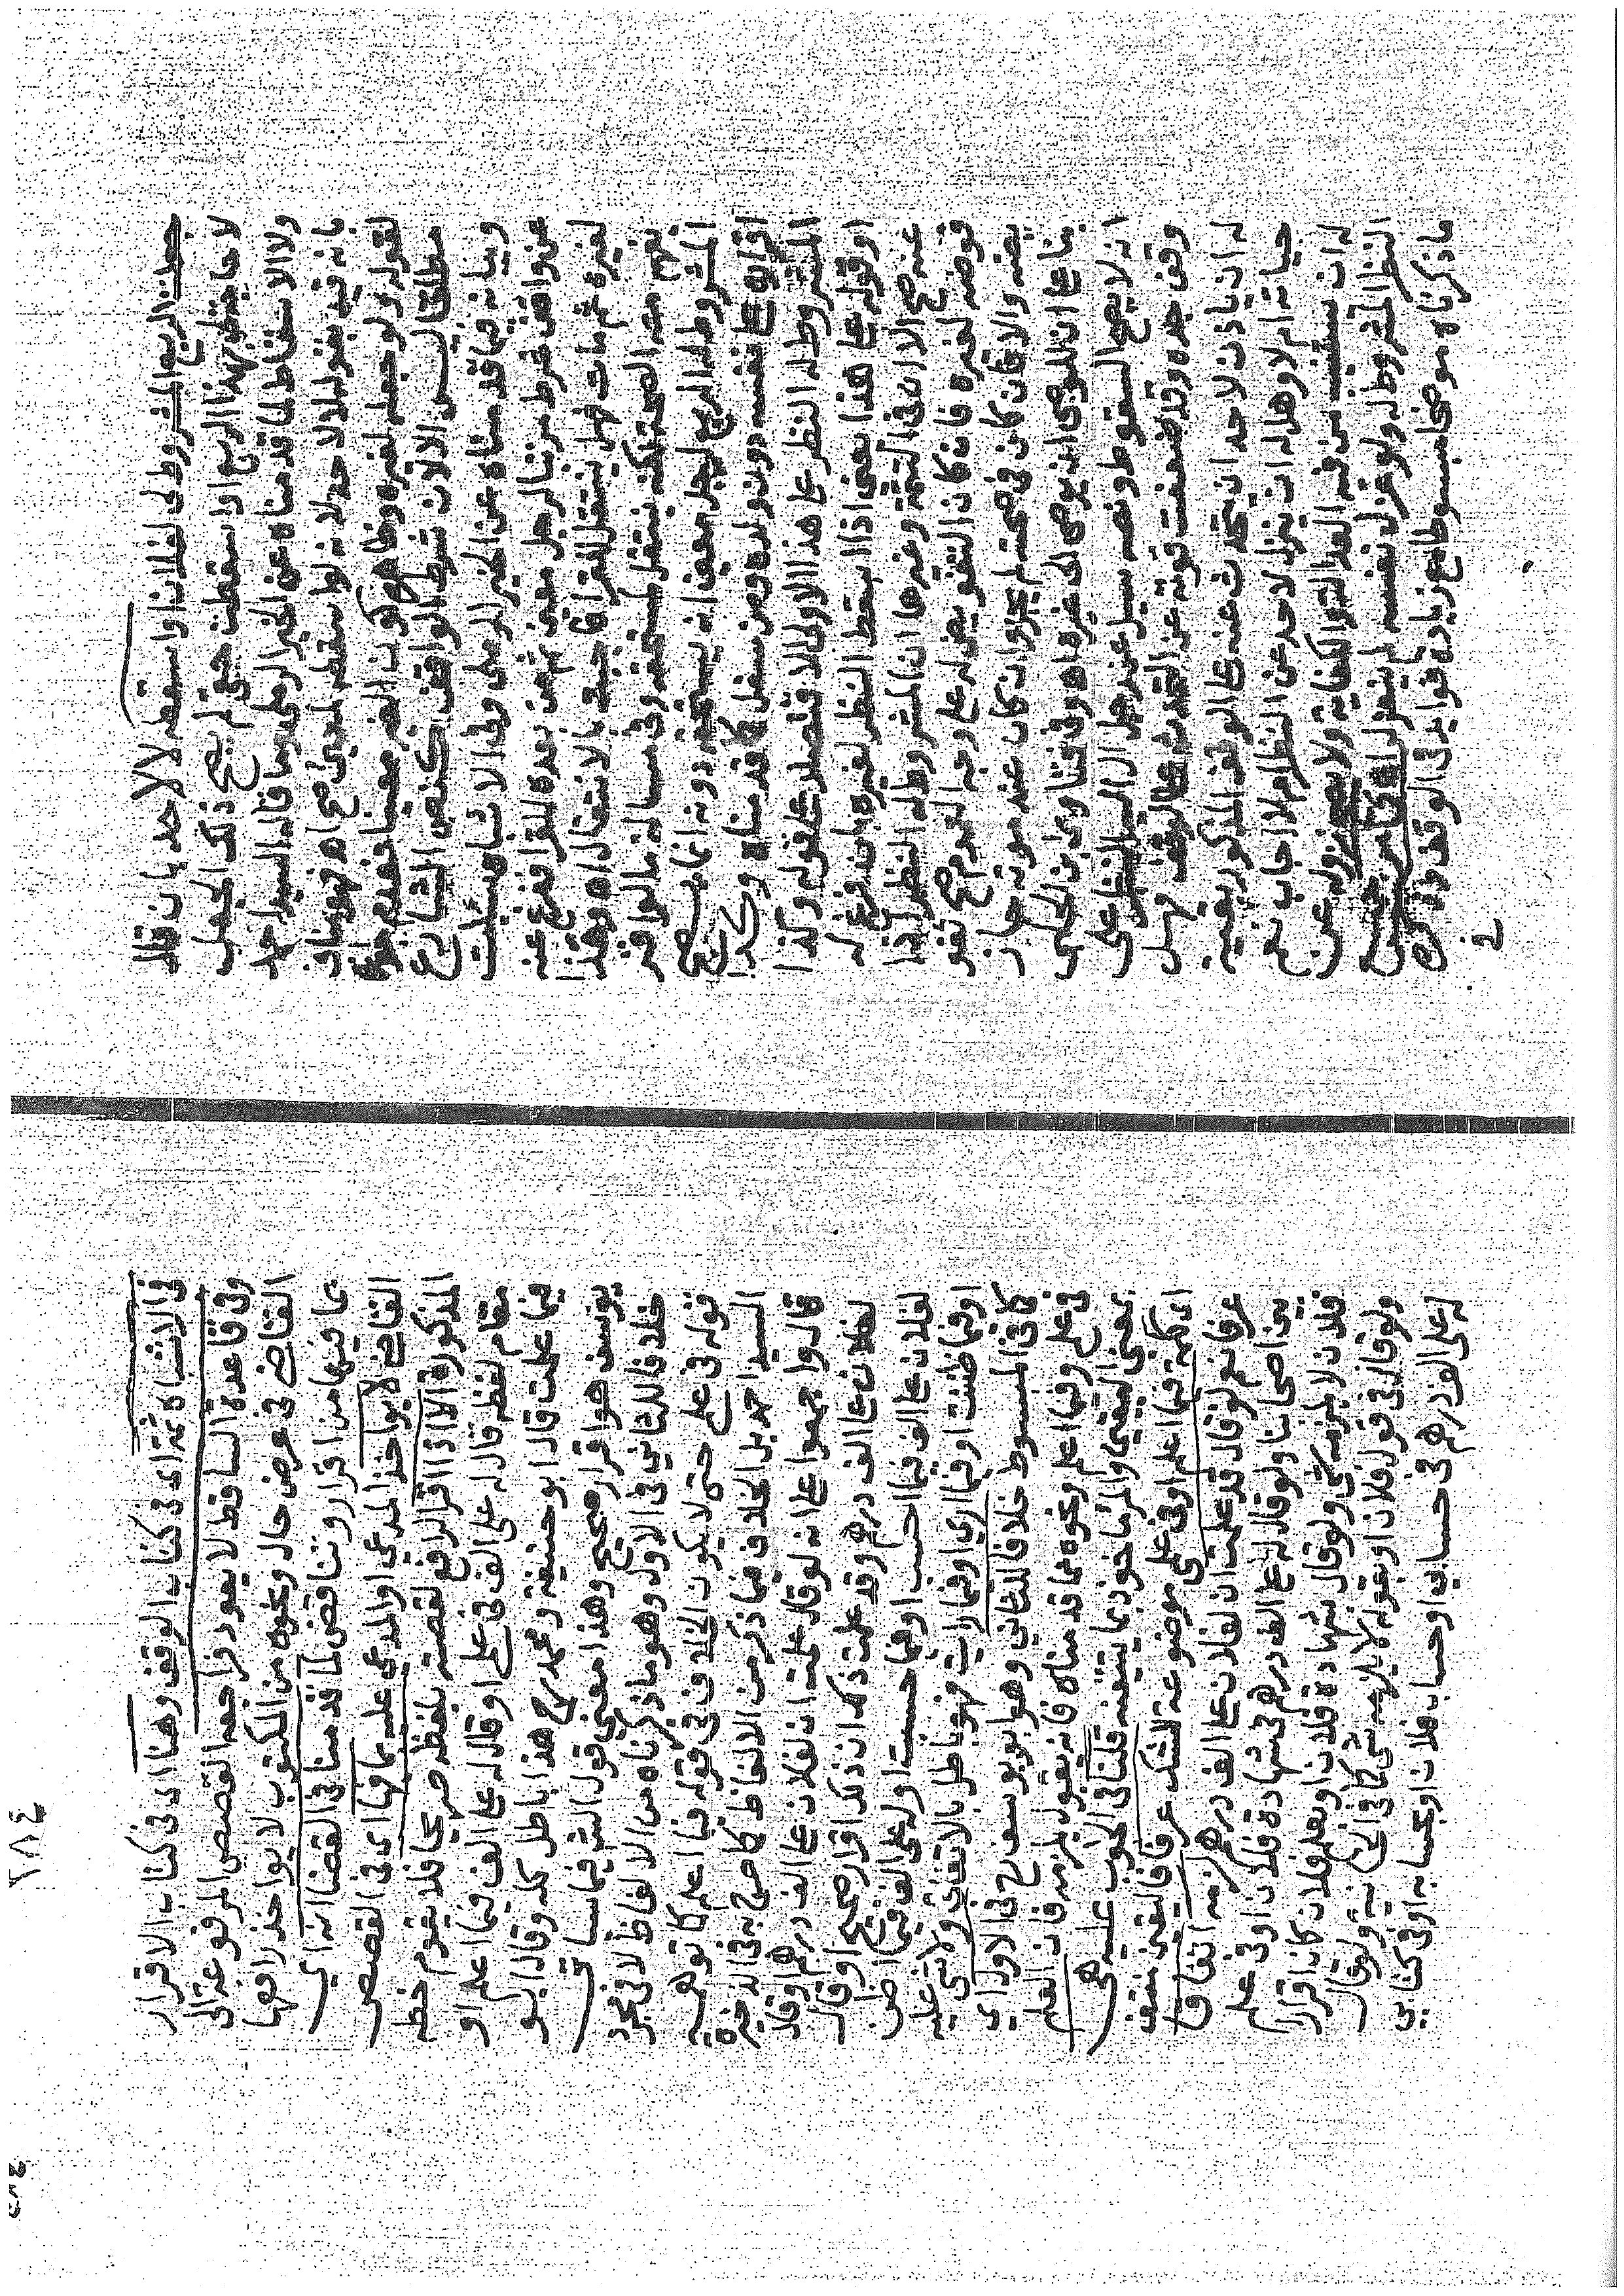 جعلت الريع المشروط لي لفلان او اسقطه لا لاحد بان قال
لا حاجة لي بهذا الريع او اسقطت حقي لم يصح ذلك الجعل
ولا الاسقاط لما قدمناه عن الخير الرملى وما قاله السيد احمد
بانه قيد بقوله لا لاحد لانه لو اسقطه لمدعي صح اه فهو مناف
لقوله ولو جعله لغيره وظاهره كون الغير معينا فعدم جواز
ليس الا لان شرط الواقف كنص الشارع
وبيانه فيما قدمناه عن الخير الرملى وفى الاشباه سئلت
عن واقف شرط مرتبا لرجل معين ثم من بعده للفقرا ففرغ عنه
لغيره ثم مات فهل ينتقل للفقرا فاجبت بالانتقال اه وهذا
يفهم منه الصحة لكنه ينتقل لمستحقه وفى مسالة ما لو اقر
المشروط له الريع لرجل معين انه يستحقه دونه انما يصح
اقراره على نفسه دون ولده ومن سفل كما قدمناه وكذا
المشروط له النظر على هذا الاولى الاقتصار على قوله وكذا
او قوله على هذا يعنى اذا اسقط النظر لغيره بان فرغ له
عنه صح الا ان فى التتمة وغيرها ان المشروط له النظر اذا
فوضه لغيره فان كان التفويض له على وجه العموم صح تفو
يضه والا فان كان فى صحته لم يجز وان كان عند موته جاز
بنا على ان للوصى ان يوصى الى غيره اه وفى فتاوى ابن الحلبى
انه لا يصح السقوط ونصه سيل عن رجل ال اليه النظر على
وقف جده وقد ضعفت قوته عن التحدث على الوقف فهل
له ان ياذن لاحد ان يتحدث عنه على الوقف المذكور
حياته ام لا وهل له ان ينزل لاحد عن النظر ام لا اجاب نعم
له ان يستنيب من فيه العدالة والكفاية ولا يصح نزوله عن
النظر المشروط له ولو عزل نفسه لم ينعزل اه
ما ذكرناه موضحا مبسوطا مع زيادة فوايد فى الوقف وذكره
فى
فى الاشباه ثمة اى فى كتاب الوقف وهنا اى فى كتاب الاقرار
وفى قاعدة الساقط لا يعود فراجعه القصص المرفوعة الى
القاضى فى عرض حال ونحوه من المكتوب لا يواخذ رافعها
بما فيها من اقرار وتناقض لما قدمنا فى القضا انه اى
القاضى لا يواخذ المدعى او المدعى عليه بما فيها اى فى القصص
المذكورة الا اذا اقر الرافع لقصته بلفظه صريحا فلا يقوم خطه
مقام لفظه قال له على الف فى علمى او قال له على الف فيما اعلم او
فيما علمت قال ابو حنيفة ومحمد رح هذا باطل كله وقال ابو
يوسف هو اقرار صحيح وهذا معنى قول الش فيما سياتى
خلافا للثانى فى الاول وهو ما ذكرناه من الالفاظ لا فى مجرد
قوله فى علمى حتى لا يكون الخلاف فى قوله فيما اعلم كما توهمه
السيد احمد بل الخلاف فيما ذكرت الالفاظ كما صرح به فى الذخيرة
قال واجمعوا على انه لو قال علمت ان لفلان على الف درهم او قال
لفلان على الف درهم وقد علمت ذلك ان ذلك اقرار صحيح او قال
لفلان على الف فيما احسب او فيما حسبت او له على الف فيما اظن
او فيما ظننت او فيما ارى او فيما رايت فهو باطل بالاتفاق ولا شى عليه
كما فى المبسوط خلافا للثانى وهو ابو يوسف رح فى الاول اى
فى علمى وفيما اعلم ونحوه مما قدمناه فانه يقول يلزمه فان العلم
بمعنى اليقين والمرء ماخوذ بما تيقنه قلنا فى الجواب عليه هى
اى كلمة فيما اعلم او فى علمى موضوعة للشك عرفا فاليقين منتف
عرفا نعم لو قال قد علمت ان لفلان على الف درهم لزمه اتفاقا
بين اصحابنا ولو قال له على الف درهم فى شهادة فلان او فى علم
فلان لا يلزمه شى ولو قال بشهادة فلان او بعلم فلان كان اقرارا
ولو قال فى قول فلان او بقوله لا يلزمه شى كما فى الخانية ولو قال
له على الف درهم فى حسابى او حساب فلان او بحسابه او فى كتابى